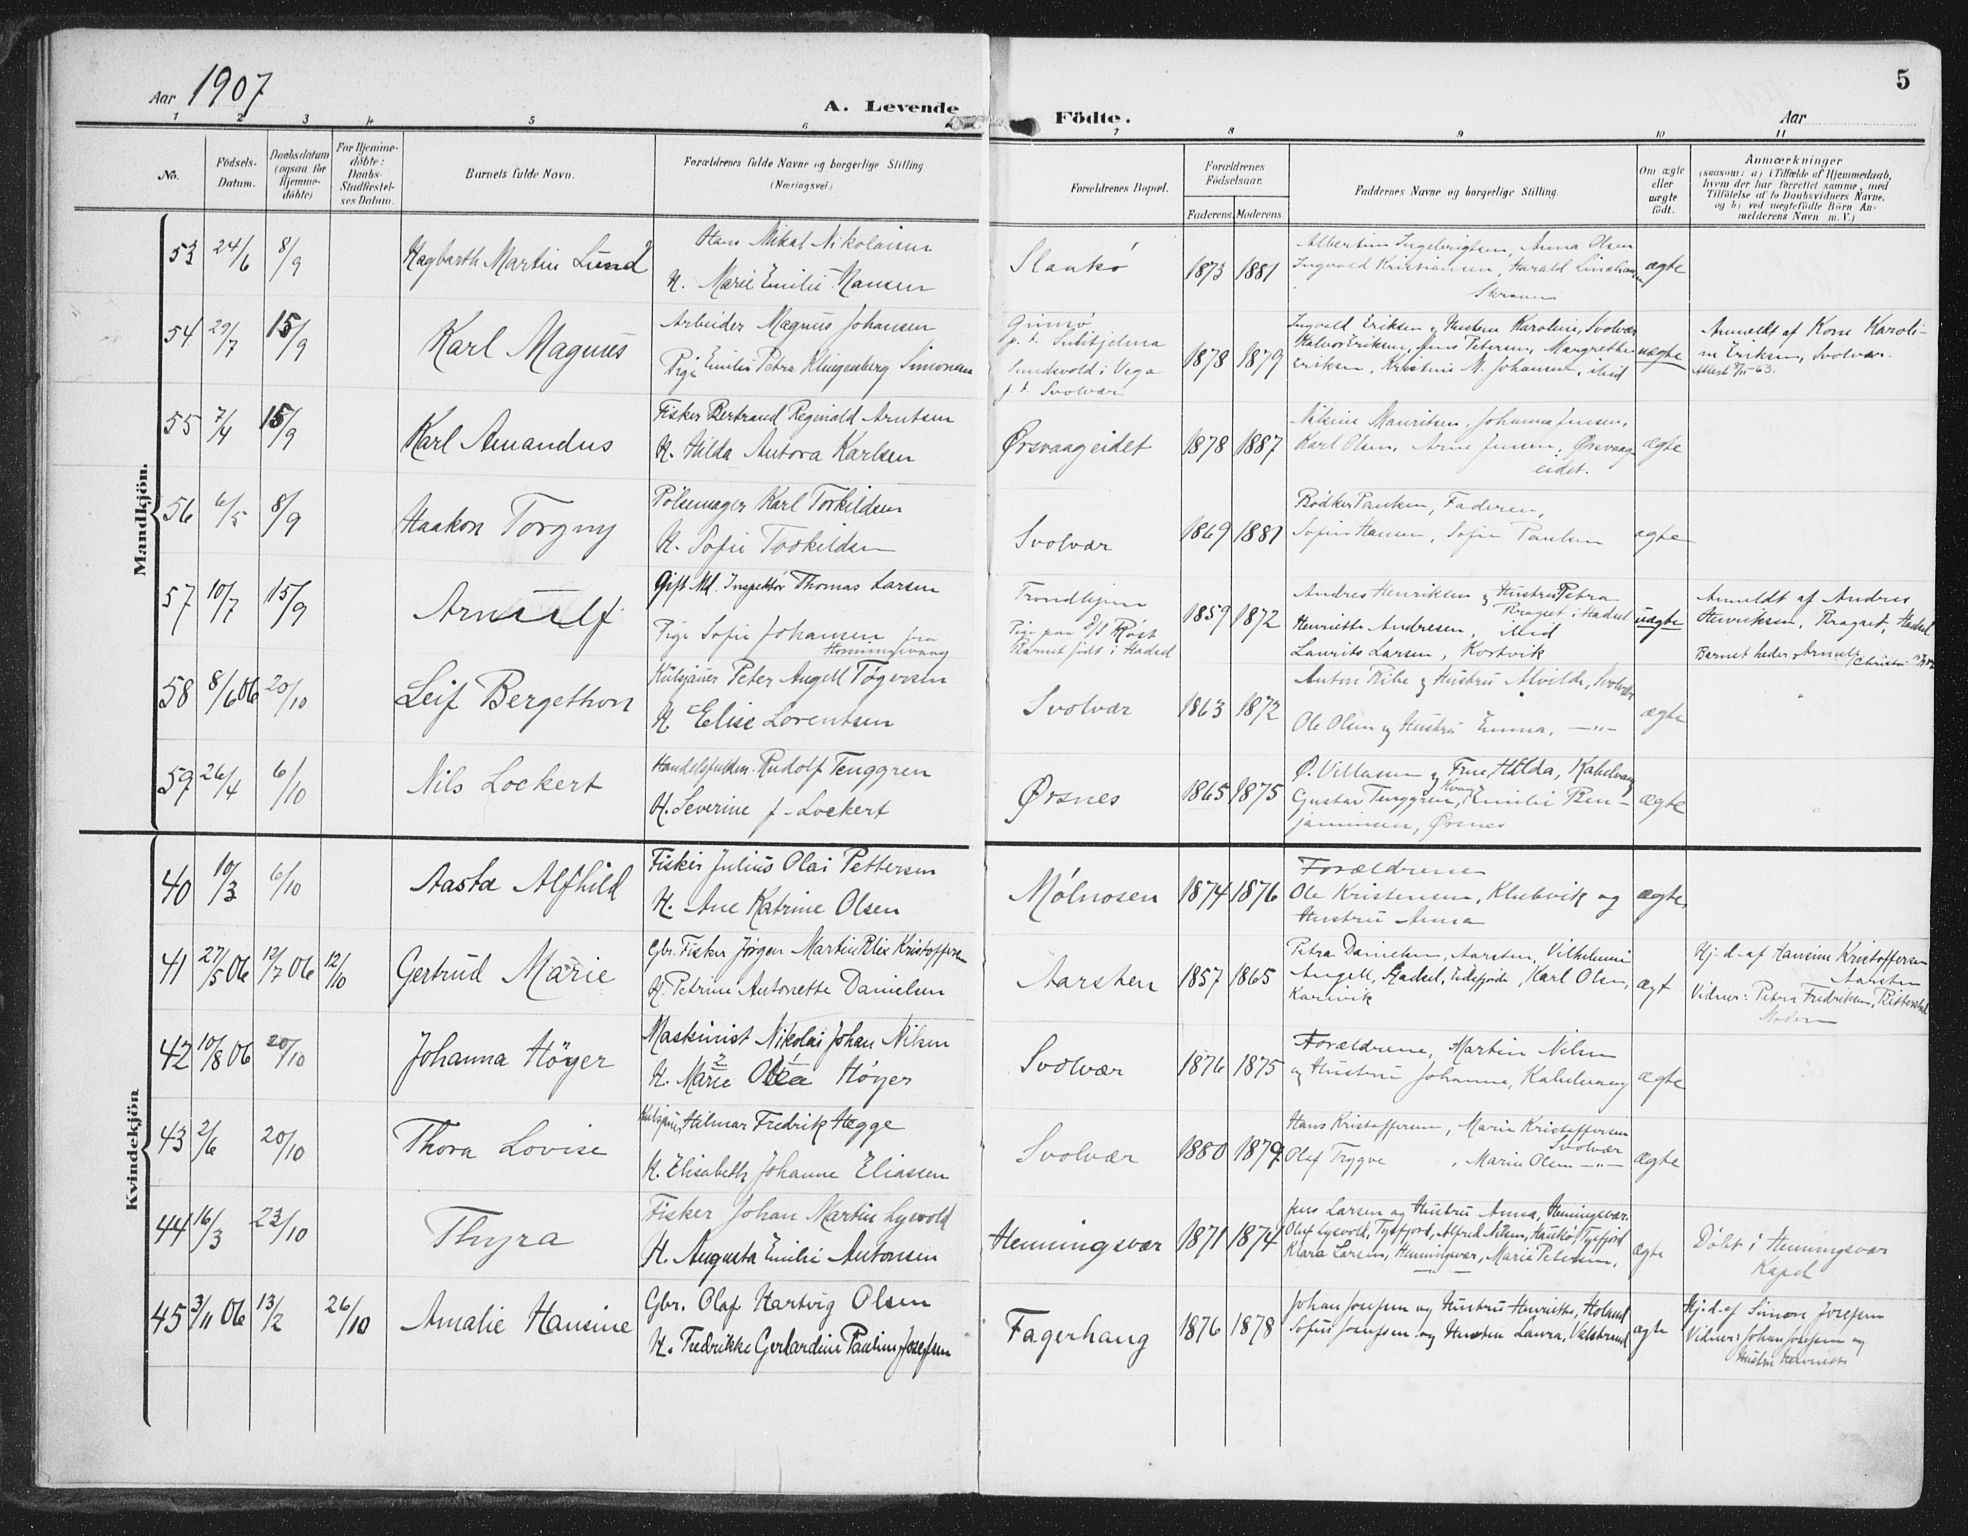 Aar 1907
A. Levende Födte.
Aar
5
1 2 3 4 5 6 7 8 9 10 11
No.
Födsels-Datum.
Daabsdatum (ogsaa for Hjemme-döbte)
For Hjemme-döbte: Daabs-Stadfæstel-ses Datum.
Barnets fulde Navn.
Forældrenes fulde Navne og borgerlige Stilling (Næringsvei.)
Forældrenes Bopæl.
Forældrenes Födselsaar.
Faderens. Moderens.
Faddernes Navne og borgerlige Stilling.
Om ægte eller uægte födt.
Anmærkninger
(saasom: a) i Tilfælde af Hjemmedaab,
hvem der har forrettet samme, med
Tilföielse af to Daabsvidners Navne,
og b) ved uægtefödte Börn An-
melderens Navn m. V.)
Mandkjön.
53 24/6 8/9 Hagbarth Martin Lund
Hans Mikal Nikolaisen
H. Marie Emilie Hansen
1873 1881
Albertine Ingebrigtsen, Anna Olsen
Ingvald Kristiansen, Harald
Skraaven
ægte
54 29/7 15/9 Karl Magnus
Arbeider Magnus Johansen
Pige Emilie Petra Klingenberg Simonsen
Gimsø
p. t. Sulitjelma
Sundsvold i Vega
p. t. Svolvær
1878 1879
Ingvald Eriksen og Hustru Karoline, Svolvær
Halvor Eriksen, Jens Petersen, Margrethe
Eriksen, Kristine M. Johansen, ibid
uægte
Anmeldt af Kone Karoli-
ne Eriksen, Svolvær.
55 7/4 15/9 Karl Amandus
Fisker Bertrand Reginald Arntsen
H. Hilda Antora Karlsen
Ørsvaageidet
1878 1887
Mauritsen, Johanna Jensen,
Karl Olsen, Arne Jensen, Ørsvaag-
eidet.
ægte
56 6/5 8/9 Haakon Torgny
Pølsemager Karl Torkildsen
H. Sofie Torkildsen
Svolvær
1869 1881
Bødker Paulsen, Faderen,
Sofie Hansen, Sofie Paulsen
ægte
57 10/7 15/9 Arnulf
Gift Md. Inspektør Thomas Larsen
Pige Sofie Johansen fra
Honningsvaag
Trondhjem
Pige paa D/S Røst
Barnet født i Hadsel
1859 1872
Andres Henriksen og Hustru Petra
Braget i Hadsel
Henriette Andresen, ibid
Laurits Larsen, Kortvik
uægte
Anmeldt af Andres
Henriksen, Braget, Hadsel
Barnet heder Arnulf
58 8/6 06 20/10 Leif Bergethon
Kulsjauer Peter Angell Tøgersen
H. Elise Lorentsen
Svolvær
1863 1872
Anton Ribe og Hustru Alvilde, Svolvær
Ole Olsen og Hustru Emma, —"—
ægte
59 26/4 6/10 Nils Lockert
Handelsfuldm. Rudolf Tenggren
H. Severine f. Lockert
Ørsnes
1865 1875
Ø. Villasen og Frue Hilda, Kabelvaag
Gustav Tenggren, Emilie Ben-
jaminsen, Ørsnes
ægte
Kvindekjön
40 10/3 6/10 Aasta Alfhild
Fisker Julius Olai Pettersen
H. Ane Katrine Olsen
Mølnosen
1874 1876
Forældrene
Ole Kristensen, Klubvik og
Hustru Anna
ægte
41 27/5 06 12/7 06 12/10 Gertrud Marie
Gbr. Fisker Jørgen Martin Blix Kristoffersen
H. Petrine Antonette Danielsen
Aarsten
1857 1865
Petra Danielsen, Aarsten, Vilhelmine
Angell, Hadsel, Eidsfjord, Karl Olsen,
Karivik
ægt
Hj. d. af Hansine Kristoffersen
Aarsten
Vidner: Petra Fredriksen,
Moderen
42 10/8 06 20/10 Johanna Höyer
Maskinist Nikolai Johan Nilsen
H. Marie Olea Höyer
Svolvær
1876 1875
Forældrene, Martin Nilsen
og Hustru Johanna, Kabelvaag
ægte
43 2/6 20/10 Thora Lovise
Kulsjauer Hilmar Fredrik Hegge
H. Elisabeth Johanne Eliassen
Svolvær
1880 1879
Hans Kristoffersen, Marie Kristoffersen
Svolvær
Olef Trygve, Marie Olsen —"—
ægte
44 16/3 23/10 Thyra
Fisker Johan Martin Lysvold
H. Augusta Emilie Antonsen
Henningsvær
1871 1874
Jens Larsen og Hustru Anna, Henningsvær.
Oluf Lysvold, Tysfjord, Alfred Nilsen, Haukø, Tysfjord
Klara Larsen, Henningsvær, Marie Petersen,
ægte
Døbt i Henningsvær
Kapel
45 3/11 06 13/2 26/10 Amalie Hansine
Gbr. Olaf Hartvig Olsen
H. Fredrikke Gerhardine Pauline Josefsen
Fagerhaug
1876 1878
Johan Josefsen og Hustru Henriette, Holand
Sofus Josefsen og Hustru Laura, Valstrand
ægte
Hj. d. af Simon Josefsen
Vidner: Johan Josefsen og
Hustru Henriette